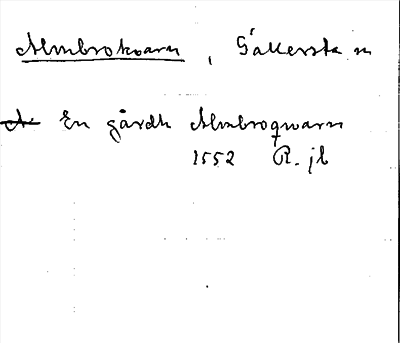 Almbrokvarn, Sällersta sn
En gårdh Almbroqwarn
1552 R. jb